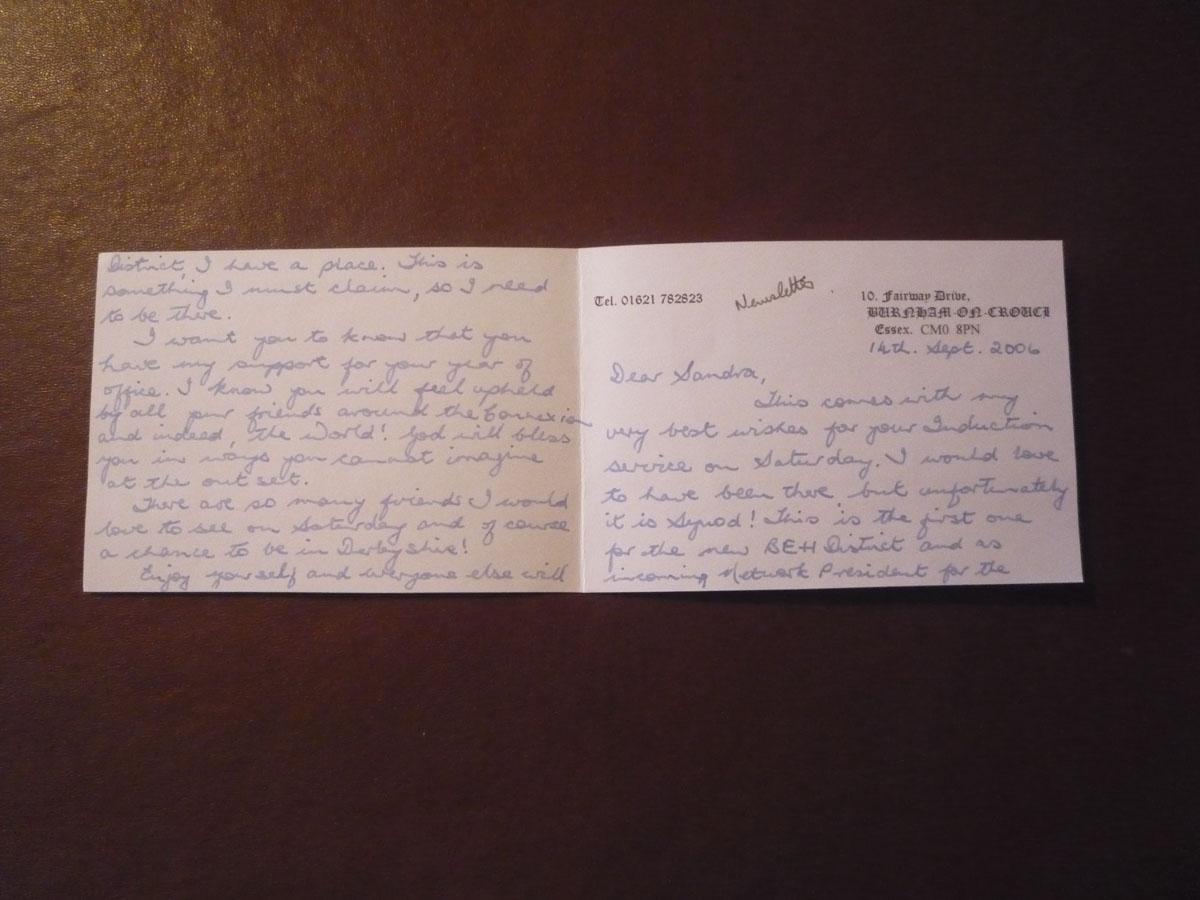 Tel. 01621 782823
Newsletter
10. Fairway Drive,
BURNHAM-ON-CROUCH
Essex. CM0 8PN
14th. Sept. 2006
Dear Sandra,
This comes with my
very best wishes for your Induction
service on Saturday. I would love
to have been there but unfortunately
it is Synod! This is the first one
for the new BEH District and as
incoming Network President for the
District, I have a place. This is
something I must claim, so I need
to be there.
I want you to know that you
have my support for your year of
office. I know you will feel upheld
by all your friends around the Connexion
and indeed, the World! God will bless
you in ways you cannot imagine
at the outset.
There are so many friends I would
love to see on Saturday and of course
a chance to be in Derbyshire!
Enjoy yourself and everyone else will